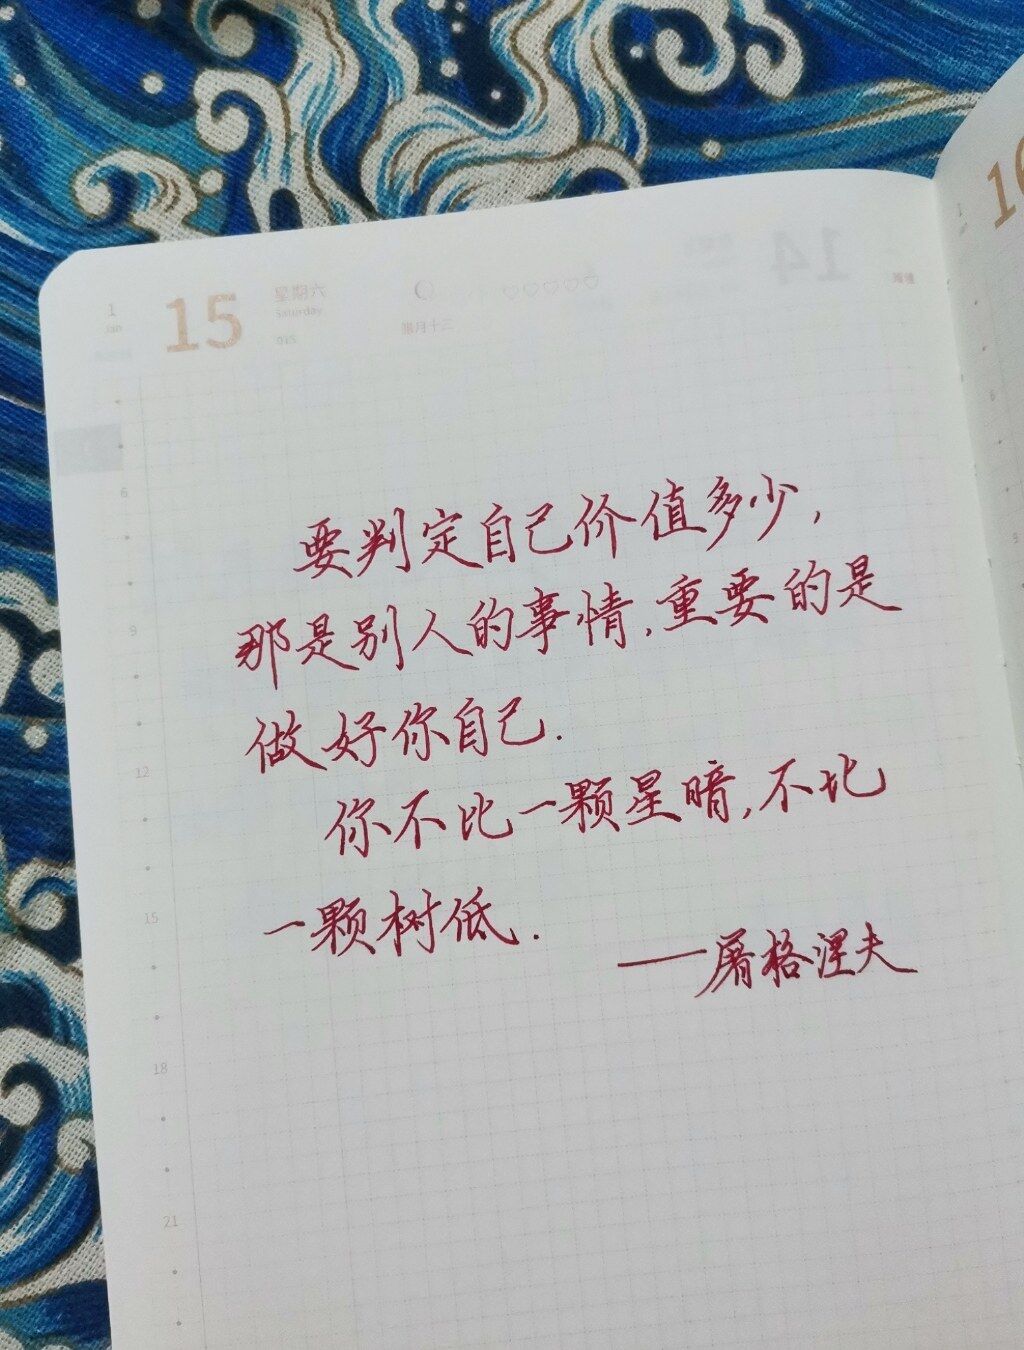 1
Jan
15
星期六
Saturday
015
腊月十三
14
6
9
12
15
18
21
要判定自己价值多少,
那是别人的事情,重要的是
做好你自己.
你不比一颗星暗,不比
一颗树低.
——屠格涅夫